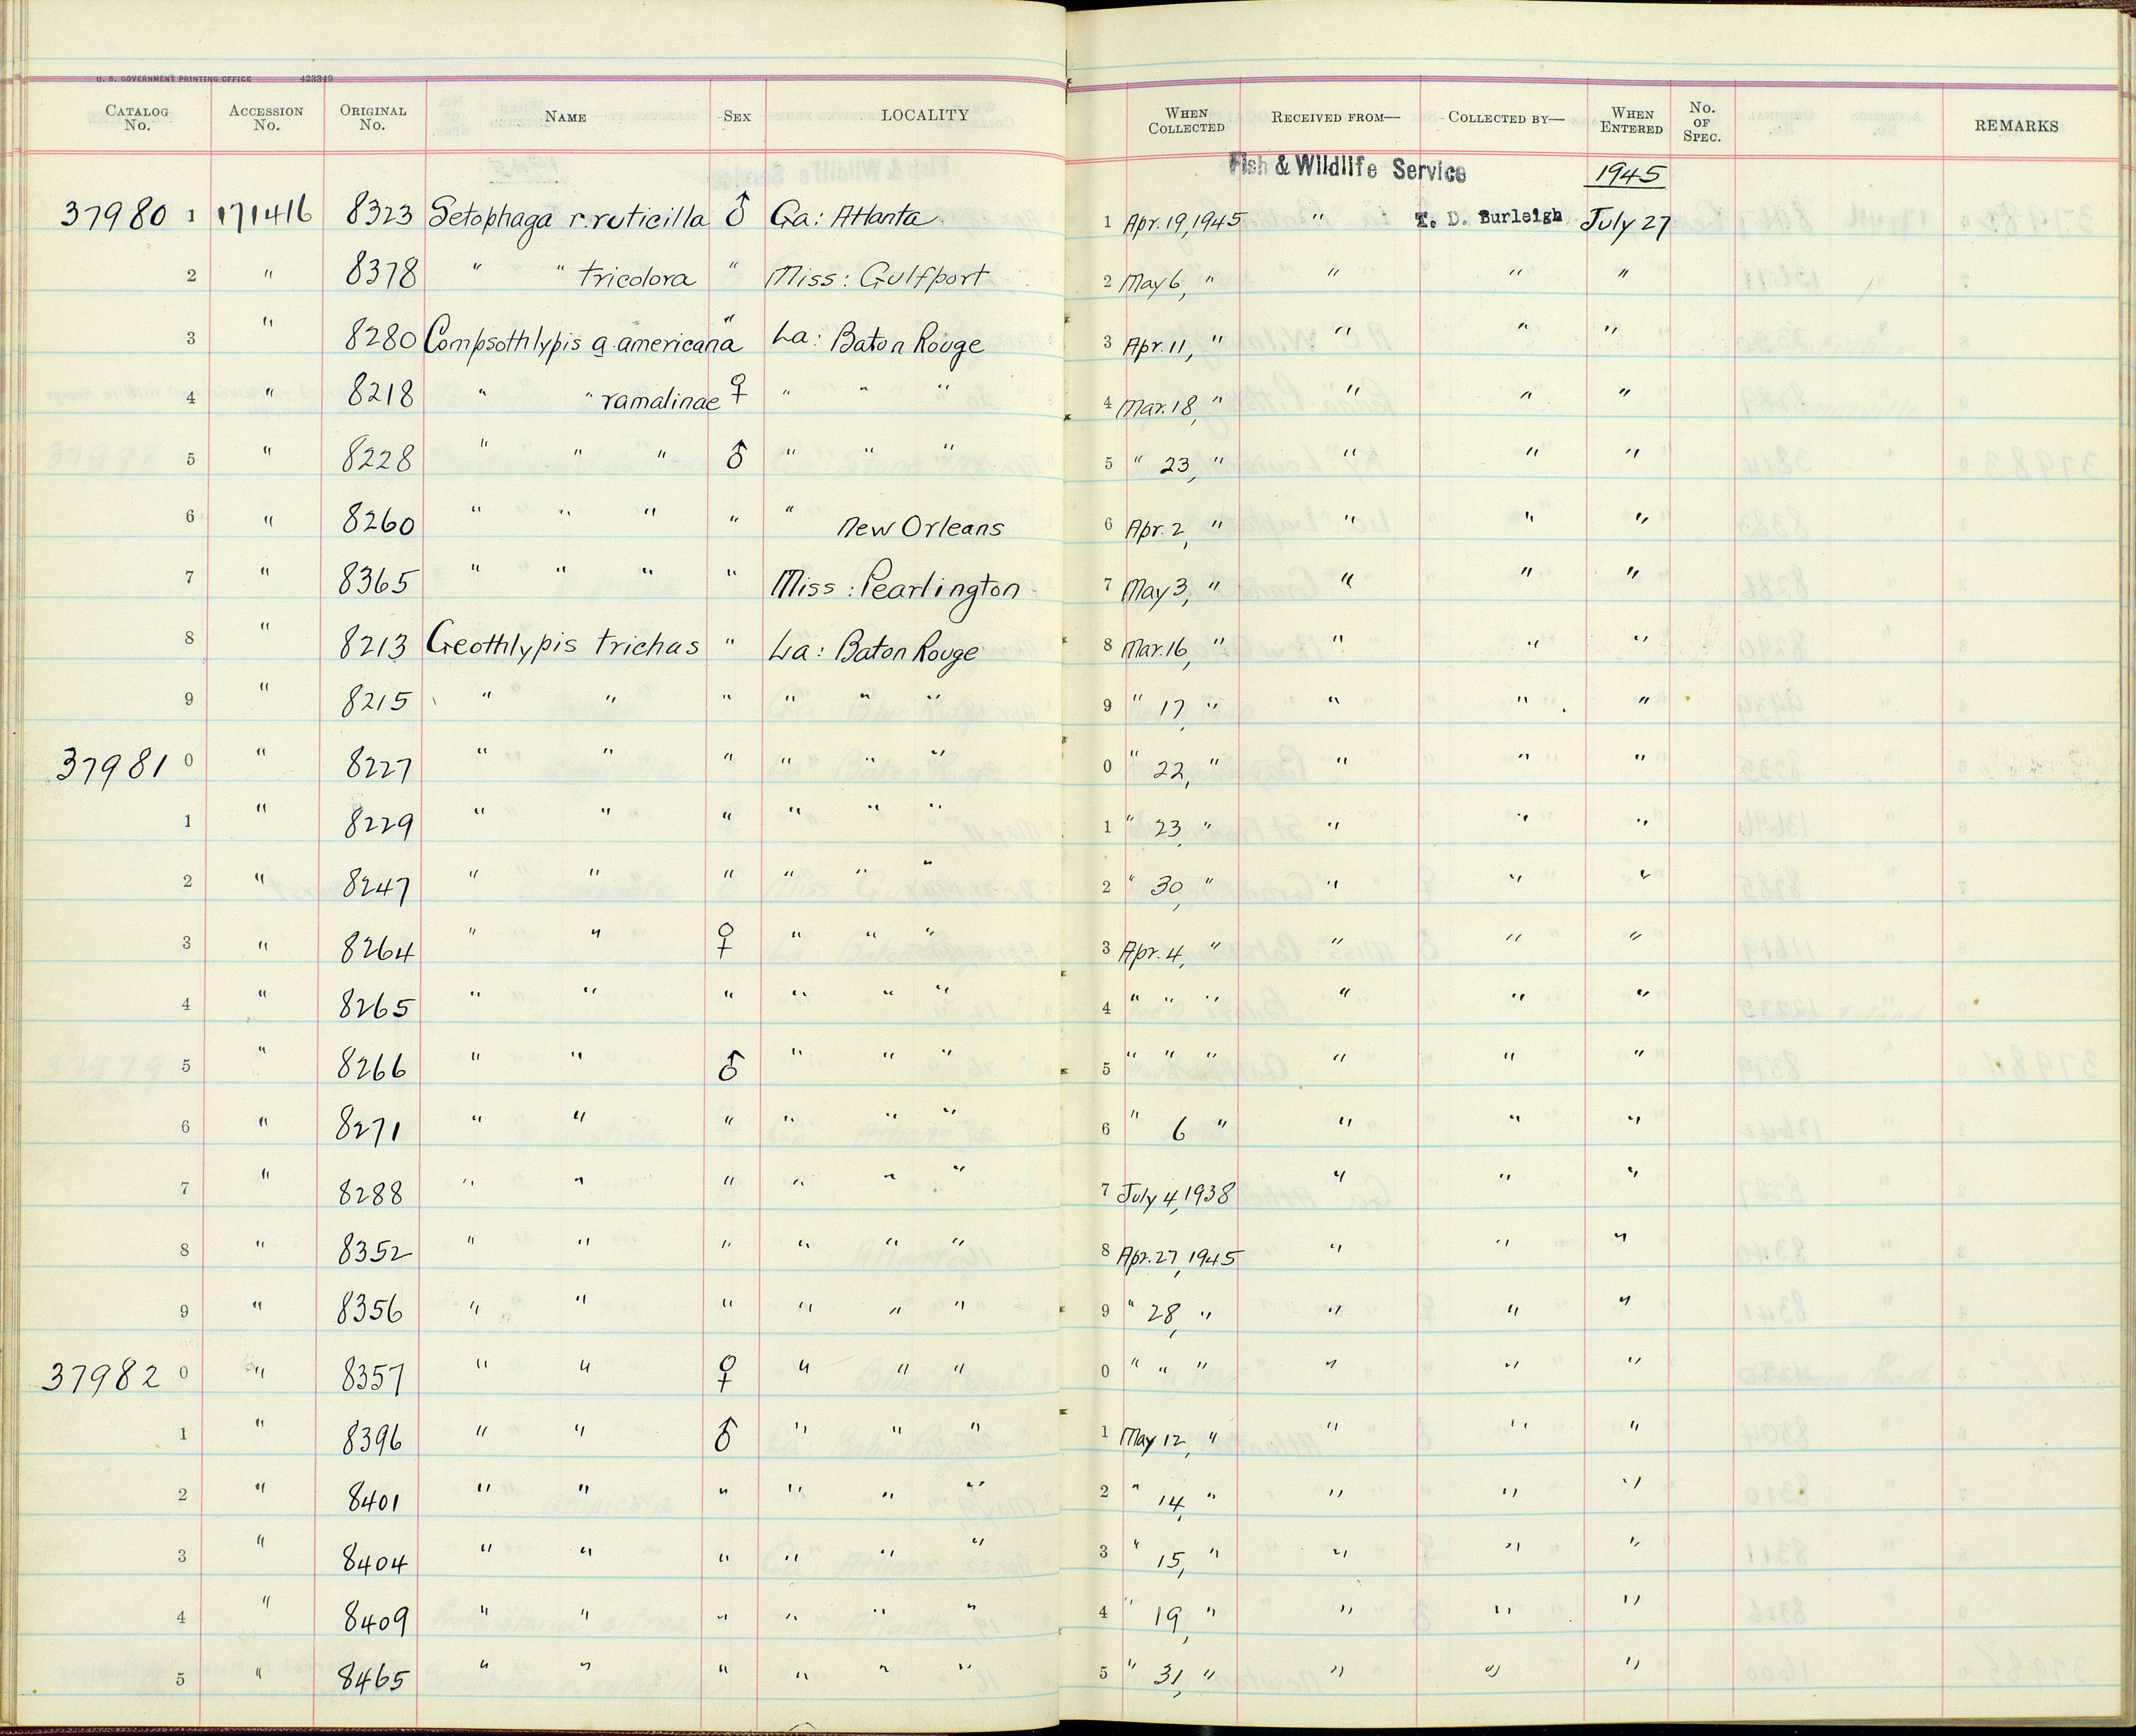 U. S. GOVERNMENT PRINTING OFFICE 423349
CATALOG No. ACCESSION No. ORIGINAL No. NAME SEX LOCALITY WHEN COLLECTED RECEIVED FROM— COLLECTED BY— WHEN ENTERED No. OF SPEC. REMARKS
Fish & Wildlife Service 1945
37980 1 171416 8323 Setophaga r. ruticilla ♂ Ga: Atlanta 1 Apr. 19, 1945 " T. D. Burleigh July 27
2 " 8378 " " tricolora " Miss: Gulfport 2 May 6, " " " "
3 " 8280 Compsothlypis a. americana " La: Baton Rouge 3 Apr. 11, " " " "
4 " 8218 " " ramalinae ♀ " " " 4 Mar. 18, " " " "
5 " 8228 " " " ♂ " " " 5 " 23, " " " "
6 " 8260 " " " " " New Orleans 6 Apr. 2, " " " "
7 " 8365 " " " " Miss: Pearlington 7 May 3, " " " "
8 " 8213 Geothlypis trichas " La: Baton Rouge 8 Mar. 16, " " " "
9 " 8215 " " " " " " 9 " 17, " " " "
37981 0 " 8227 " " " " " " 0 " 22, " " " "
1 " 8229 " " " " " " 1 " 23, " " " "
2 " 8247 " " " " " " 2 " 30, " " " "
3 " 8264 " " ♀ " " " 3 Apr. 4, " " " "
4 " 8265 " " " " " " 4 " " " " " "
5 " 8266 " " ♂ " " " 5 " " " " " "
6 " 8271 " " " " " " 6 " 6 " " " "
7 " 8288 " " " " " " 7 July 4, 1938 " " "
8 " 8352 " " " " " " 8 Apr. 27, 1945 " " "
9 " 8356 " " " " " " 9 " 28, " " " "
37982 0 " 8357 " " ♀ " " " 0 " " " " " "
1 " 8396 " " ♂ " " " 1 May 12, " " " "
2 " 8401 " " " " " " 2 " 14, " " " "
3 " 8404 " " " " " " 3 " 15, " " " "
4 " 8409 " " " " " " 4 " 19, " " " "
5 " 8465 " " " " " " 5 " 31, " " " "